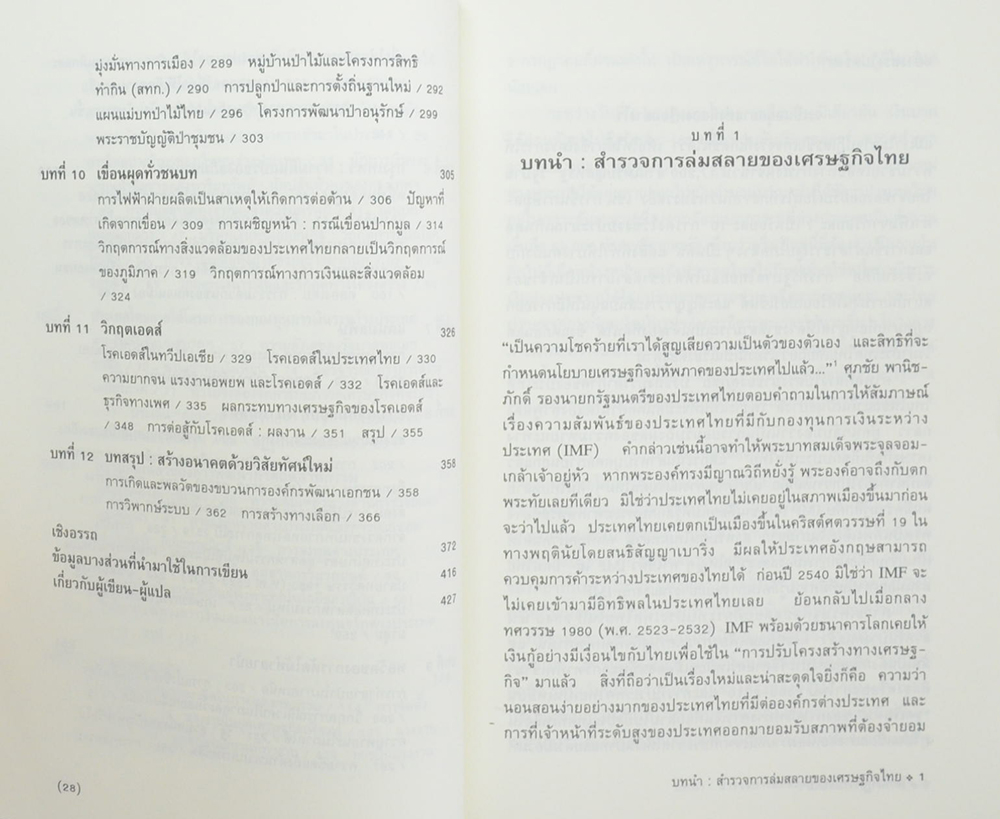 มุ่งมั่นทางการเมือง / 289 หมู่บ้านป่าไม้และโครงการสิทธิ
ทำกิน (สทก.) / 290 การปลูกป่าและการตั้งถิ่นฐานใหม่ / 292
แผนแม่บทป่าไม้ไทย / 296 โครงการพัฒนาป่าอนุรักษ์ / 299
พระราชบัญญัติป่าชุมชน / 303
บทที่ 10 เขื่อนผุดทั่วชนบท 305
การไฟฟ้าฝ่ายผลิตเป็นสาเหตุให้เกิดการต่อต้าน / 306 ปัญหาที่
เกิดจากเขื่อน / 309 การเผชิญหน้า : กรณีเขื่อนปากมูล / 314
วิกฤตการณ์ทางสิ่งแวดล้อมของประเทศไทยกลายเป็นวิกฤตการณ์
ของภูมิภาค / 319 วิกฤตการณ์ทางการเงินและสิ่งแวดล้อม
/ 324
บทที่ 11 วิกฤตเอดส์ 326
โรคเอดส์ในทวีปเอเชีย / 329 โรคเอดส์ในประเทศไทย / 330
ความยากจน แรงงานอพยพ และโรคเอดส์ / 332 โรคเอดส์และ
ธุรกิจทางเพศ / 335 ผลกระทบทางเศรษฐกิจของโรคเอดส์
/ 348 การต่อสู้กับโรคเอดส์ : ผลงาน / 351 สรุป / 355
บทที่ 12 บทสรุป : สร้างอนาคตด้วยวิสัยทัศน์ใหม่ 358
การเกิดและพลวัตของขบวนการองค์กรพัฒนาเอกชน / 358
การวิพากษ์ระบบ / 362 การสร้างทางเลือก / 366
เชิงอรรถ 372
ข้อมูลบางส่วนที่นำมาใช้ในการเขียน 416
เกี่ยวกับผู้เขียน-ผู้แปล 427
(28)
บทที่ 1
บทนำ : สำรวจการล่มสลายของเศรษฐกิจไทย
“เป็นความโชคร้ายที่เราได้สูญเสียความเป็นตัวของตัวเอง และสิทธิที่จะ
กำหนดนโยบายเศรษฐกิจมหัพภาคของประเทศไปแล้ว...”¹ ศุภชัย พานิช-
ภักดิ์ รองนายกรัฐมนตรีของประเทศไทยตอบคำถามในการให้สัมภาษณ์
เรื่องความสัมพันธ์ของประเทศไทยที่มีกับกองทุนการเงินระหว่าง
ประเทศ (IMF) คำกล่าวเช่นนี้อาจทำให้พระบาทสมเด็จพระจุลจอม-
เกล้าเจ้าอยู่หัว หากพระองค์ทรงมีญาณวิถีหยั่งรู้ พระองค์อาจถึงกับตก
พระทัยเลยทีเดียว มิใช่ว่าประเทศไทยไม่เคยอยู่ในสภาพเมืองขึ้นมาก่อน
จะว่าไปแล้ว ประเทศไทยเคยตกเป็นเมืองขึ้นในคริสต์ศตวรรษที่ 19 ใน
ทางพฤตินัยโดยสนธิสัญญาเบาริ่ง มีผลให้ประเทศอังกฤษสามารถ
ควบคุมการค้าระหว่างประเทศของไทยได้ ก่อนปี 2540 มิใช่ว่า IMF จะ
ไม่เคยเข้ามามีอิทธิพลในประเทศไทยเลย ย้อนกลับไปเมื่อกลาง
ทศวรรษ 1980 (พ.ศ. 2523-2532) IMF พร้อมด้วยธนาคารโลกเคยให้
เงินกู้อย่างมีเงื่อนไขกับไทยเพื่อใช้ใน “การปรับโครงสร้างทางเศรษฐ-
กิจ” มาแล้ว สิ่งที่ถือว่าเป็นเรื่องใหม่และน่าสะดุดใจยิ่งก็คือ ความว่า
นอนสอนง่ายอย่างมากของประเทศไทยที่มีต่อองค์กรต่างประเทศ และ
การที่เจ้าหน้าที่ระดับสูงของประเทศออกมายอมรับสภาพที่ต้องจำยอม
บทนำ : สำรวจการล่มสลายของเศรษฐกิจไทย ❖ 1